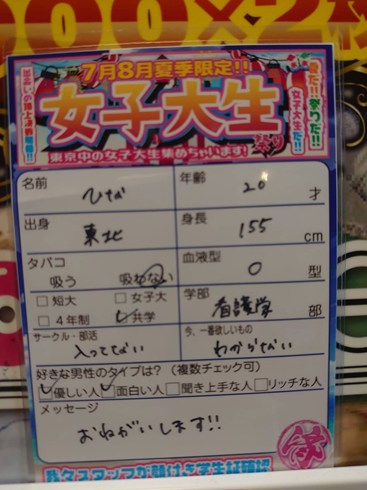 7月8月夏季限定!!
女子大生
東京中の女子大生集めちゃいます!
夏だ!!祭りだ!!
女子大生だ!!
名前 ひな
年齢 20 才
出身 東北
身長 155 cm
タバコ
吸う 吸わない
血液型 O 型
□短大 □女子大
□4年制 ☑共学
学部 看護学 部
サークル・部活
入ってない
今、一番欲しいもの
わからない
好きな男性のタイプは?(複数チェック可)
☑優しい人 ☑面白い人 □聞き上手な人 □リッチな人
メッセージ
おねがいします!!